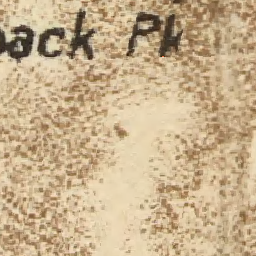 back Pk